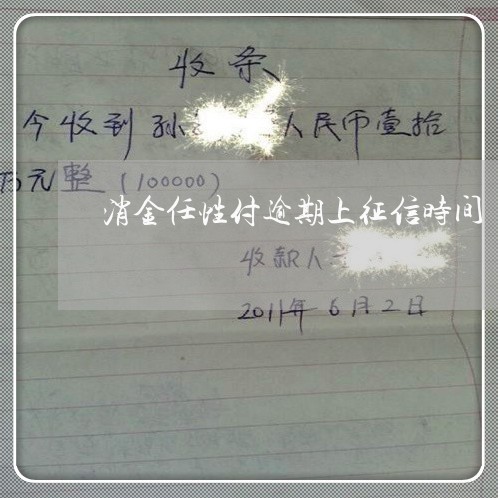 收条
今收到孙 人民币壹拾
万元整（100000）
消金任性付逾期上征信時间
收款人
2011年6月2日